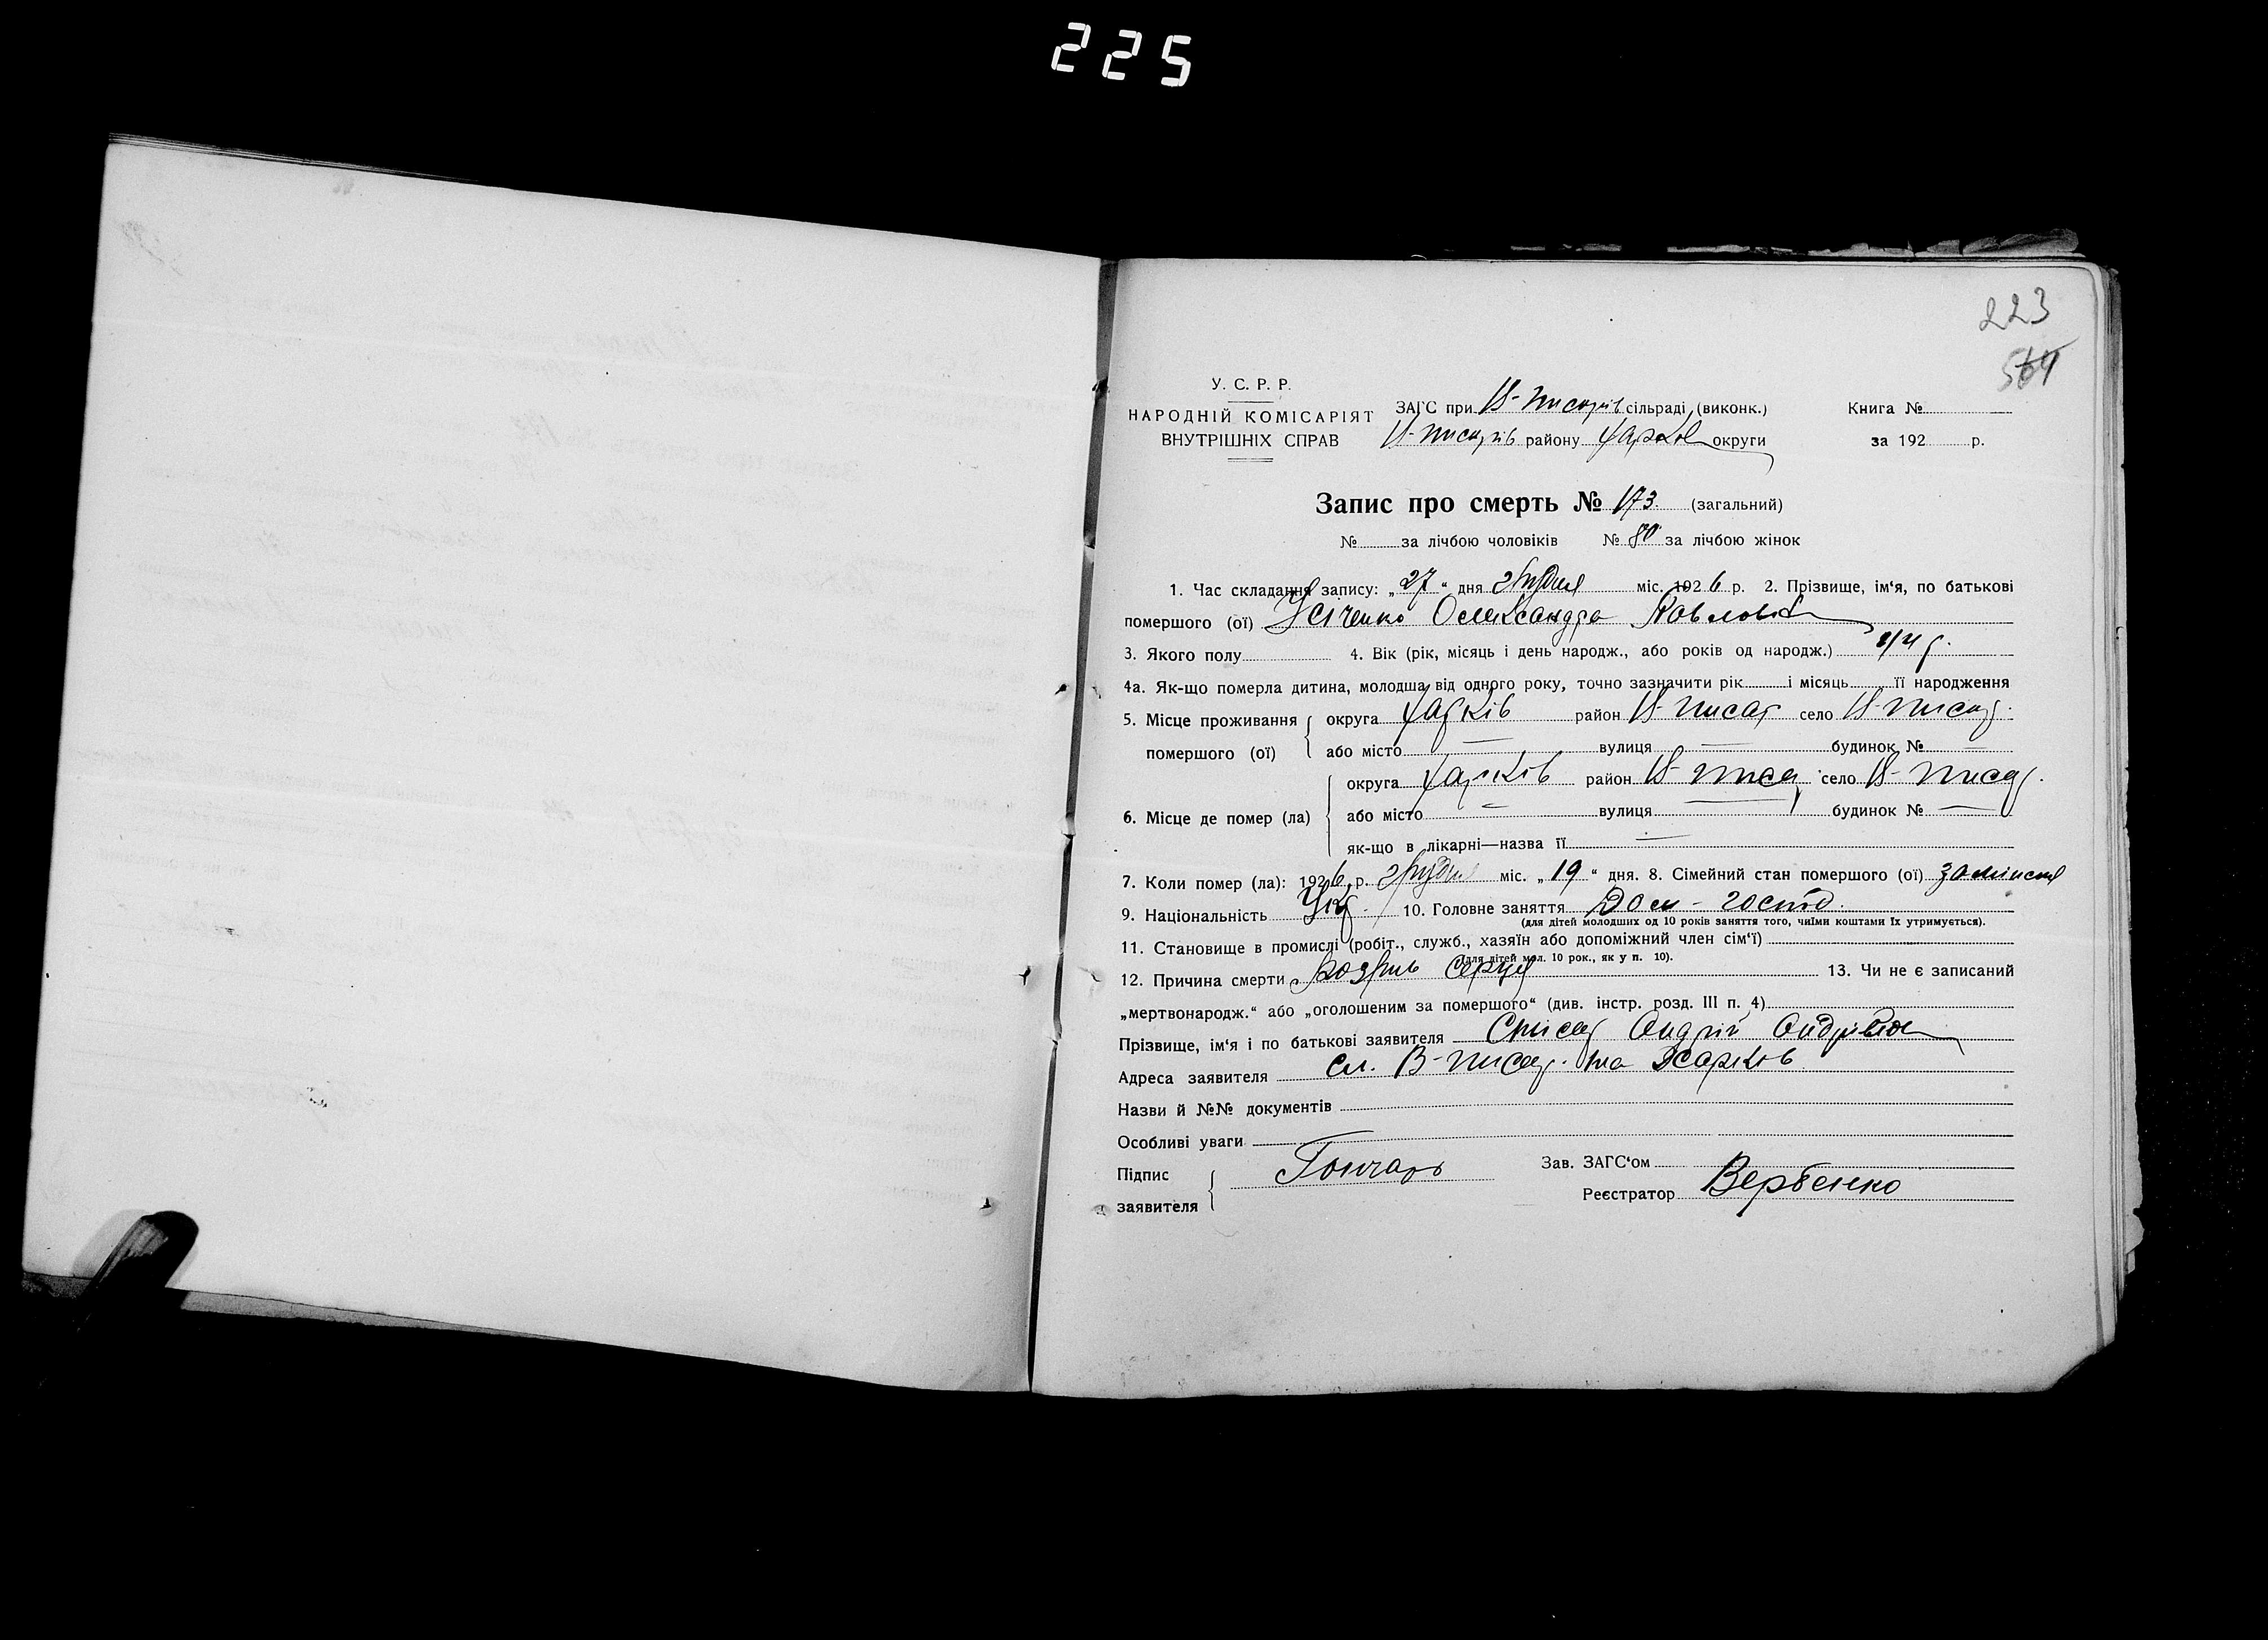 225
223
564
У. С. Р. Р.
НАРОДНІЙ КОМІСАРІЯТ
ВНУТРІШНІХ СПРАВ
ЗАГС при В-Писарів сільраді (виконк.)
В-Писарів району Харков округи
Книга №
за 192 р.
Запис про смерть № 173. (загальний)
№ за лічбою чоловіків № 80 за лічбою жінок
1. Час складання запису: „27“ дня грудня міс. 1926 р. 2. Прізвище, ім‘я, по батькові
помершого (ої) Усіченко Олександра Павловна
3. Якого полу 4. Вік (рік, місяць і день народж., або років од народж.)
4а. Як-що померла дитина, молодша від одного року, точно зазначити рік і місяць її народження
5. Місце проживання помершого (ої)
округа Харків район В-Писар село В-Писар.
або місто — вулиця — будинок № —
6. Місце де помер (ла)
округа Харків район В-Писар село В-Писар.
або місто — вулиця — будинок № —
як-що в лікарні—назва її —
7. Коли помер (ла): 1926 р. грудня міс. „19“ дня. 8. Сімейний стан помершого (ої) замінсня
9. Національність Укр. 10. Головне заняття Дом-госпо.
(для дітей молодших од 10 років заняття того, чиїми коштами їх утримується).
11. Становище в промислі (робіт., служб., хазяїн або допоміжний член сім‘ї)
(для дітей мол. 10 рок., як у п. 10).
12. Причина смерти серця 13. Чи не є записаний
„мертвонародж.“ або „оголошеним за помершого“ (див. інстр. розд. III п. 4)
Прізвище, ім‘я і по батькові заявителя Андрій Андрієв
Адреса заявителя сл. В-Писар. на Харків
Назви й №№ документів
Особливі уваги
Підпис заявителя Гончарь
Зав. ЗАГС‘ом
Реєстратор Вербенко